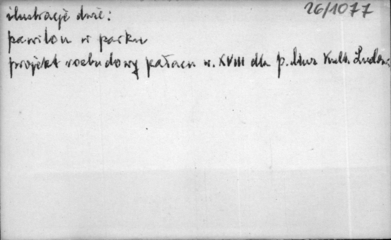 ilustracje dwie: 26/1077
pawilon w parku
projekt rozbudowy pałacu w. XVIII dla p. Muz Kult. Ludow.